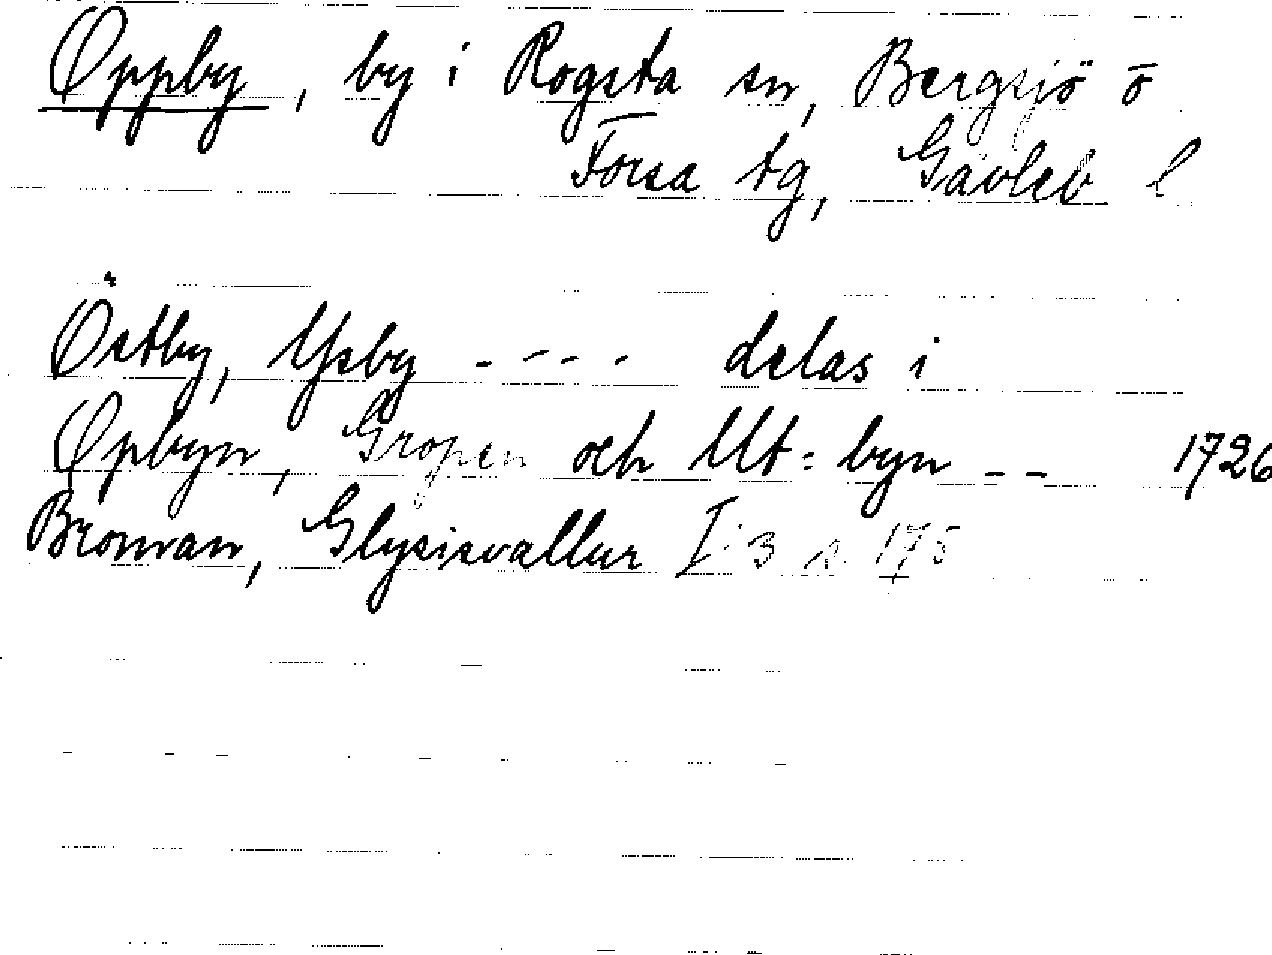 Öppby, by i Rogsta sn, Bergsjö o
Forsa tg, Gävleb l
Östby, Ysby - - - - delas i
Öpbyn, Gropen och Ut=byn - - 1726
Broman, Glysisvallur I:3 s. 175